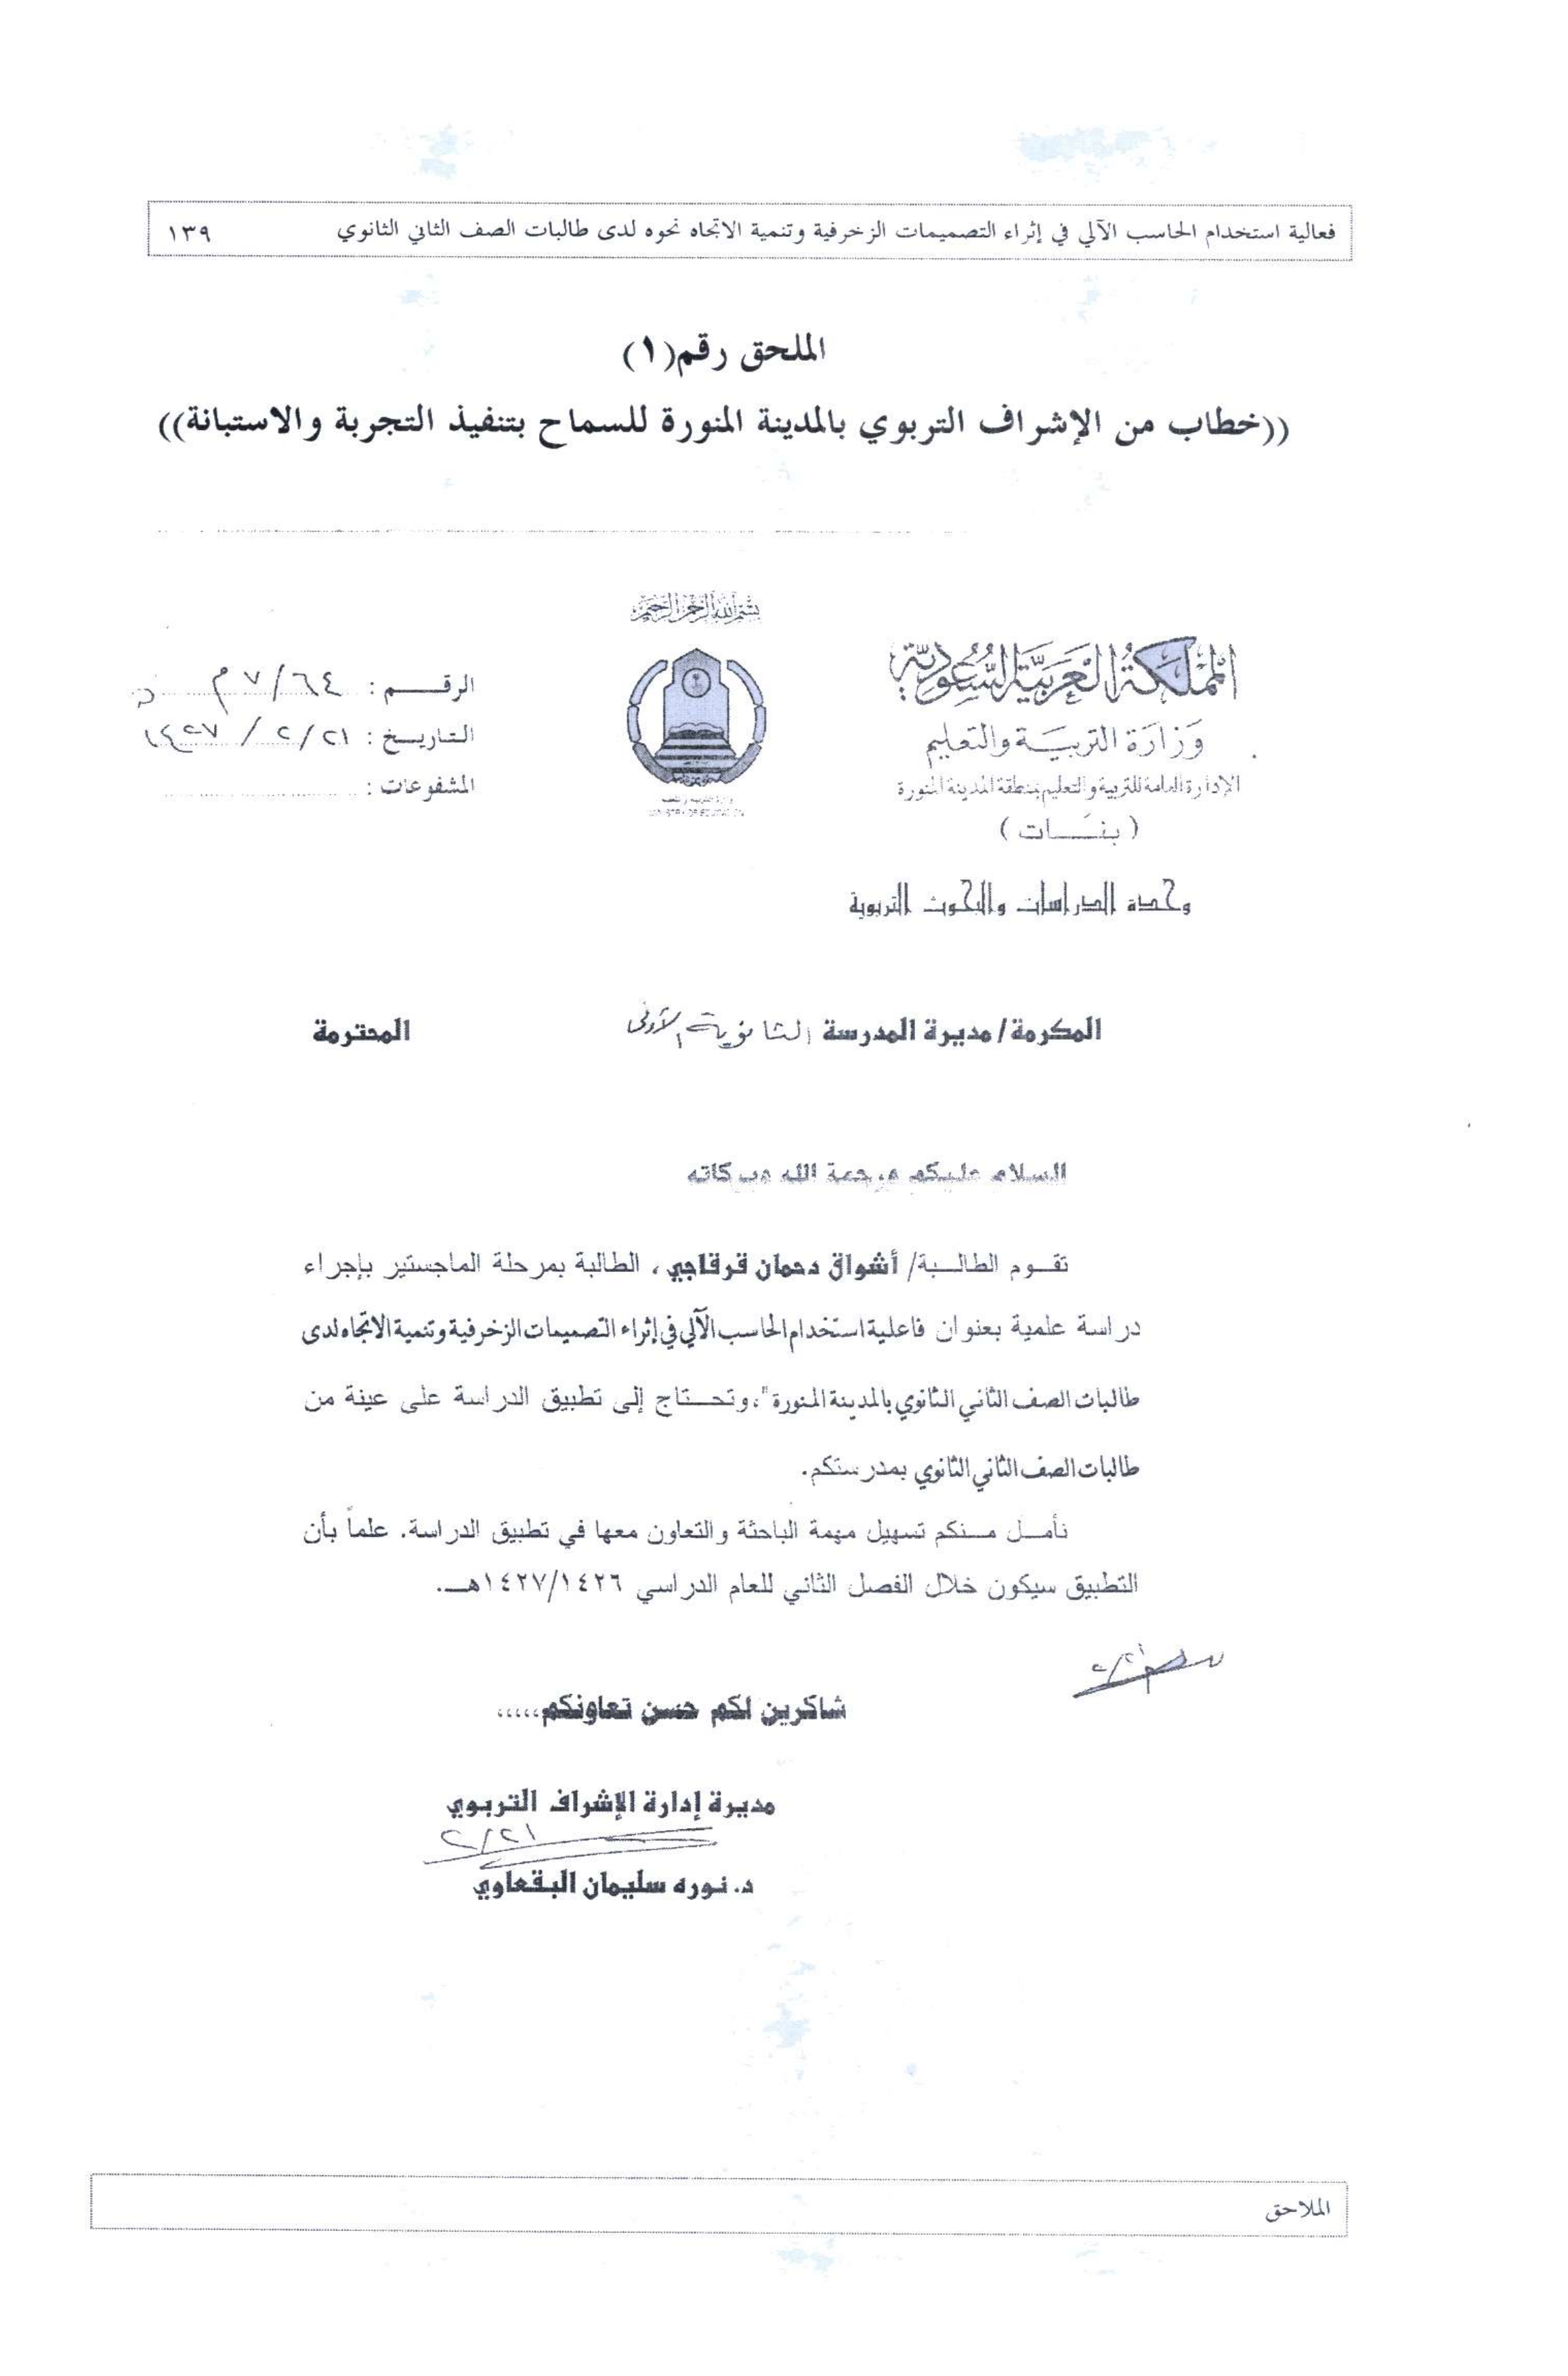 فعالية استخدام الحاسب الآلي في إثراء التصميمات الزخرفية وتنمية الاتجاه نحوه لدى طالبات الصف الثاني الثانوي ١٣٩
الملحق رقم(١)
((خطاب من الإشراف التربوي بالمدينة المنورة للسماح بتنفيذ التجربة والاستبانة))
بسم الله الرحمن الرحيم
المملكة العربية السعودية
وزارة التربية والتعليم
الإدارة العامة للتربية والتعليم بمنطقة المدينة المنورة
(بنات)
وحدة الدراسات والبحوث التربوية
الرقم : ٧/٦٤ م
التاريخ : ٢/٢١ / ١٤٢٧
المشفوعات :
المكرمة/ مديرة المدرسة الثانوية الأولى المحترمة
السلام عليكم ورحمة الله وبركاته
تقوم الطالبة/ أشواق دحمان قرقاجي ، الطالبة بمرحلة الماجستير بإجراء
دراسة علمية بعنوان فاعلية استخدام الحاسب الآلي في إثراء التصميمات الزخرفية وتنمية الاتجاه لدى
طالبات الصف الثاني الثانوي بالمدينة المنورة"، وتحتاج إلى تطبيق الدراسة على عينة من
طالبات الصف الثاني الثانوي بمدرستكم.
نأمل منكم تسهيل مهمة الباحثة والتعاون معها في تطبيق الدراسة. علماً بأن
التطبيق سيكون خلال الفصل الثاني للعام الدراسي ١٤٢٧/١٤٢٦هـ.
٢/٢١
شاكرين لكم حسن تعاونكم،،،،،
مديرة إدارة الإشراف التربوي
٢/٢١
د. نوره سليمان البقعاوي
الملاحق